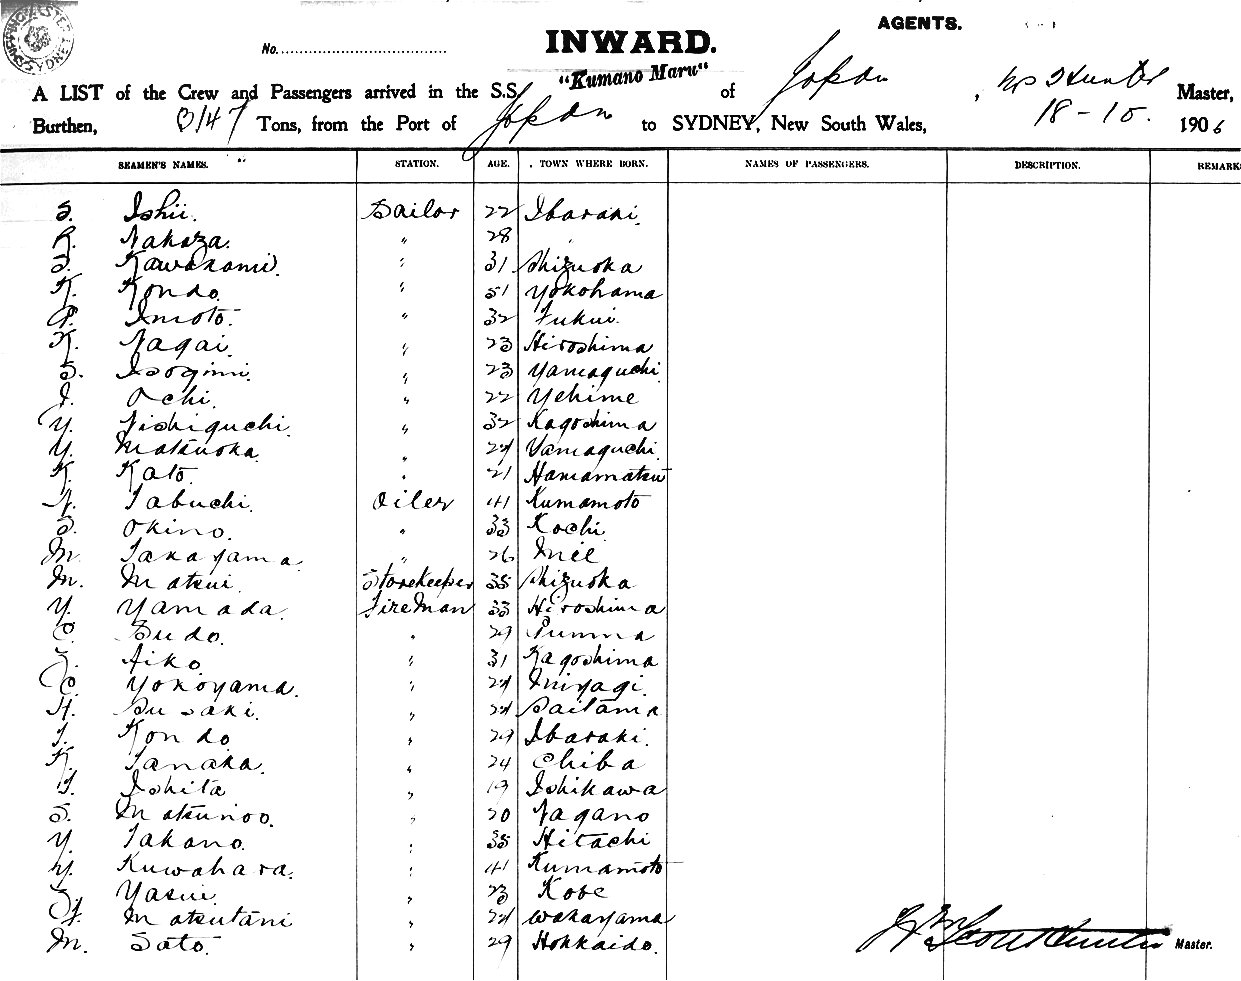 AGENTS.
No.
INWARD.
"Kumano Maru"
A LIST of the Crew and Passengers arrived in the S.S. of Japan, Master,
Burthen, 3147 Tons, from the Port of Japan to SYDNEY, New South Wales, 18-10. 1906
SEAMEN'S NAMES. STATION. AGE. TOWN WHERE BORN. NAMES OF PASSENGERS. DESCRIPTION. REMARK
S. Ishii. Sailor 22 Ibaraki
R. Nakaza. " 28 "
S. Kawakami. " 31 Shizuoka
K. Kondo. " 51 Yokohama
Imoto. " 32 Fukui.
K. Nagai. " 23 Hiroshima
S. Isogimi. " 23 Yamaguchi
I. Ochi. " 22 Yehime
Y. Nishiguchi. " 32 Kagoshima
Y. Matsuoka. " 24 Yamaguchi
K. Kato. " 21 Hamamatsu
Tabuchi. Oiler 41 Kumamoto
S. Okino. " 33 Kochi
M. Takayama. " 26 Miê
M. Matsui. Storekeeper 35 Shizuoka
Y. Yamada. Fireman 33 Hiroshima
Sudo. " 29
Aiko. " 31 Kagoshima
Yokoyama. " 24 Miyagi.
H. Susaki. " 24 Saitama
Kondo " 29 Ibaraki.
K. Tanaka. " 24 Chiba
Ishita " 19 Ishikawa
S. Matsunoo. " 20 Nagano
Y. Takano. " 35 Hitachi
Y. Kuwahara. " 41 Kumamoto
Yasui. " 23 Kobe
Matsutani " 24 Wakayama
M. Sato. " 29 Hokkaido.
Master.